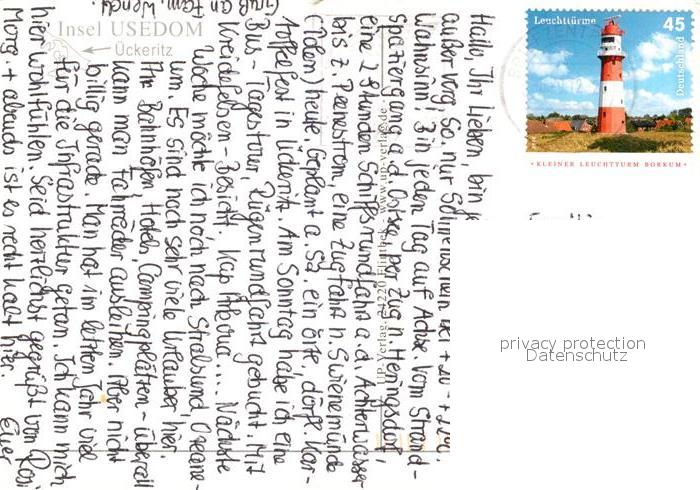 Insel USEDOM
Ückeritz
Leuchttürme
45
Deutschland
• KLEINER LEUCHTTURM BORKUM •
Hallo, Ihr Lieben, bin
außer vorg. So. nur Sonnenschein bei + 20 -
Wahnsinn! Bin jeden Tag auf Achse. Vom Strand-
spaziergang a. d. Ostsee, per Zug n. Heringsdorf,
eine 2 Stunden Schiffsrundfahrt a. d. Achterwasser
bis z. Peenestrom, eine Zugfahrt n. Swienemünde
(Polen) heute. Geplant a. Sa. ein örtl. dörfl. Kar-
toffelfest in Ückeritz. Am Sonntag habe ich eine
Bus-Tagestour, Rügenrundfahrt gebucht. Mit
Kreidefelsen-Besicht. Kap Arkona ... Nächste
Woche möchte ich noch nach Stralsund, Ozeane-
um. Es sind noch sehr viele Urlauber hier.
An Bahnhöfen, Hotels, Campingplätzen - überall
kann man Fahrräder ausleihen. Aber nicht
billig gerade. Man hat im letzten Jahr viel
für die Infrastruktur getan. Ich kann mich
hier wohlfühlen. Seid herzlichst gegrüßt von Rosi
Morg. + abends ist es recht kalt hier. Euer
Gruß an Fam. Wendt
privacy protection
Datenschutz